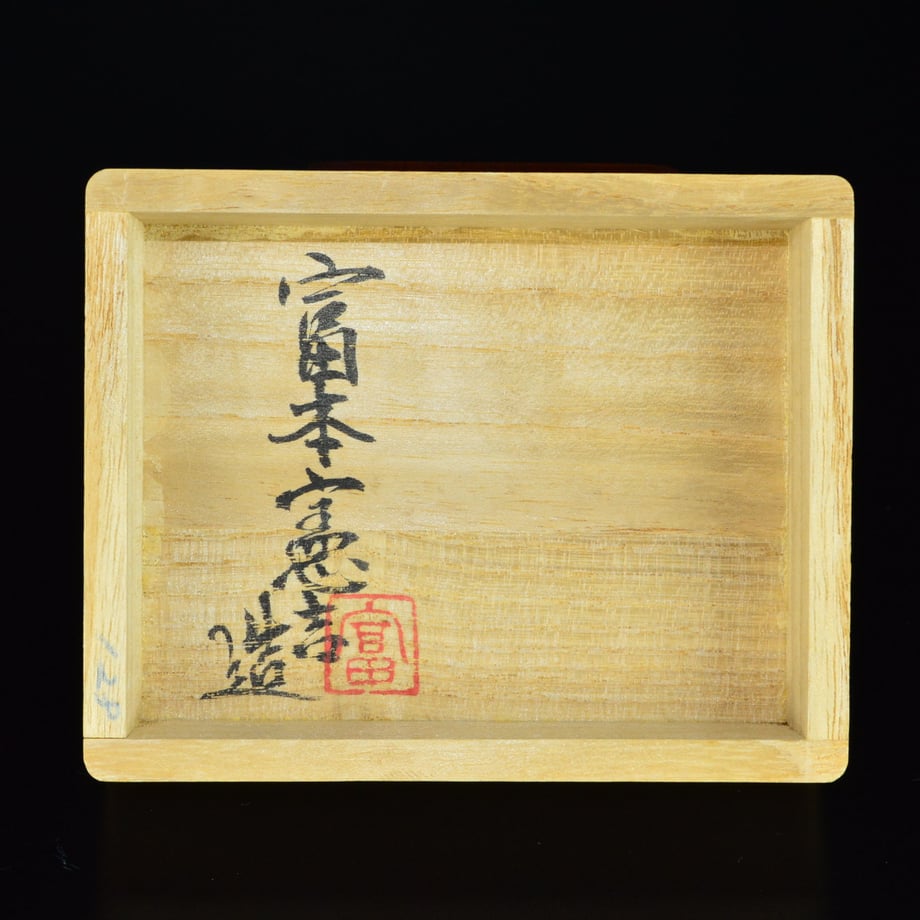 富本憲吉
造
富
128